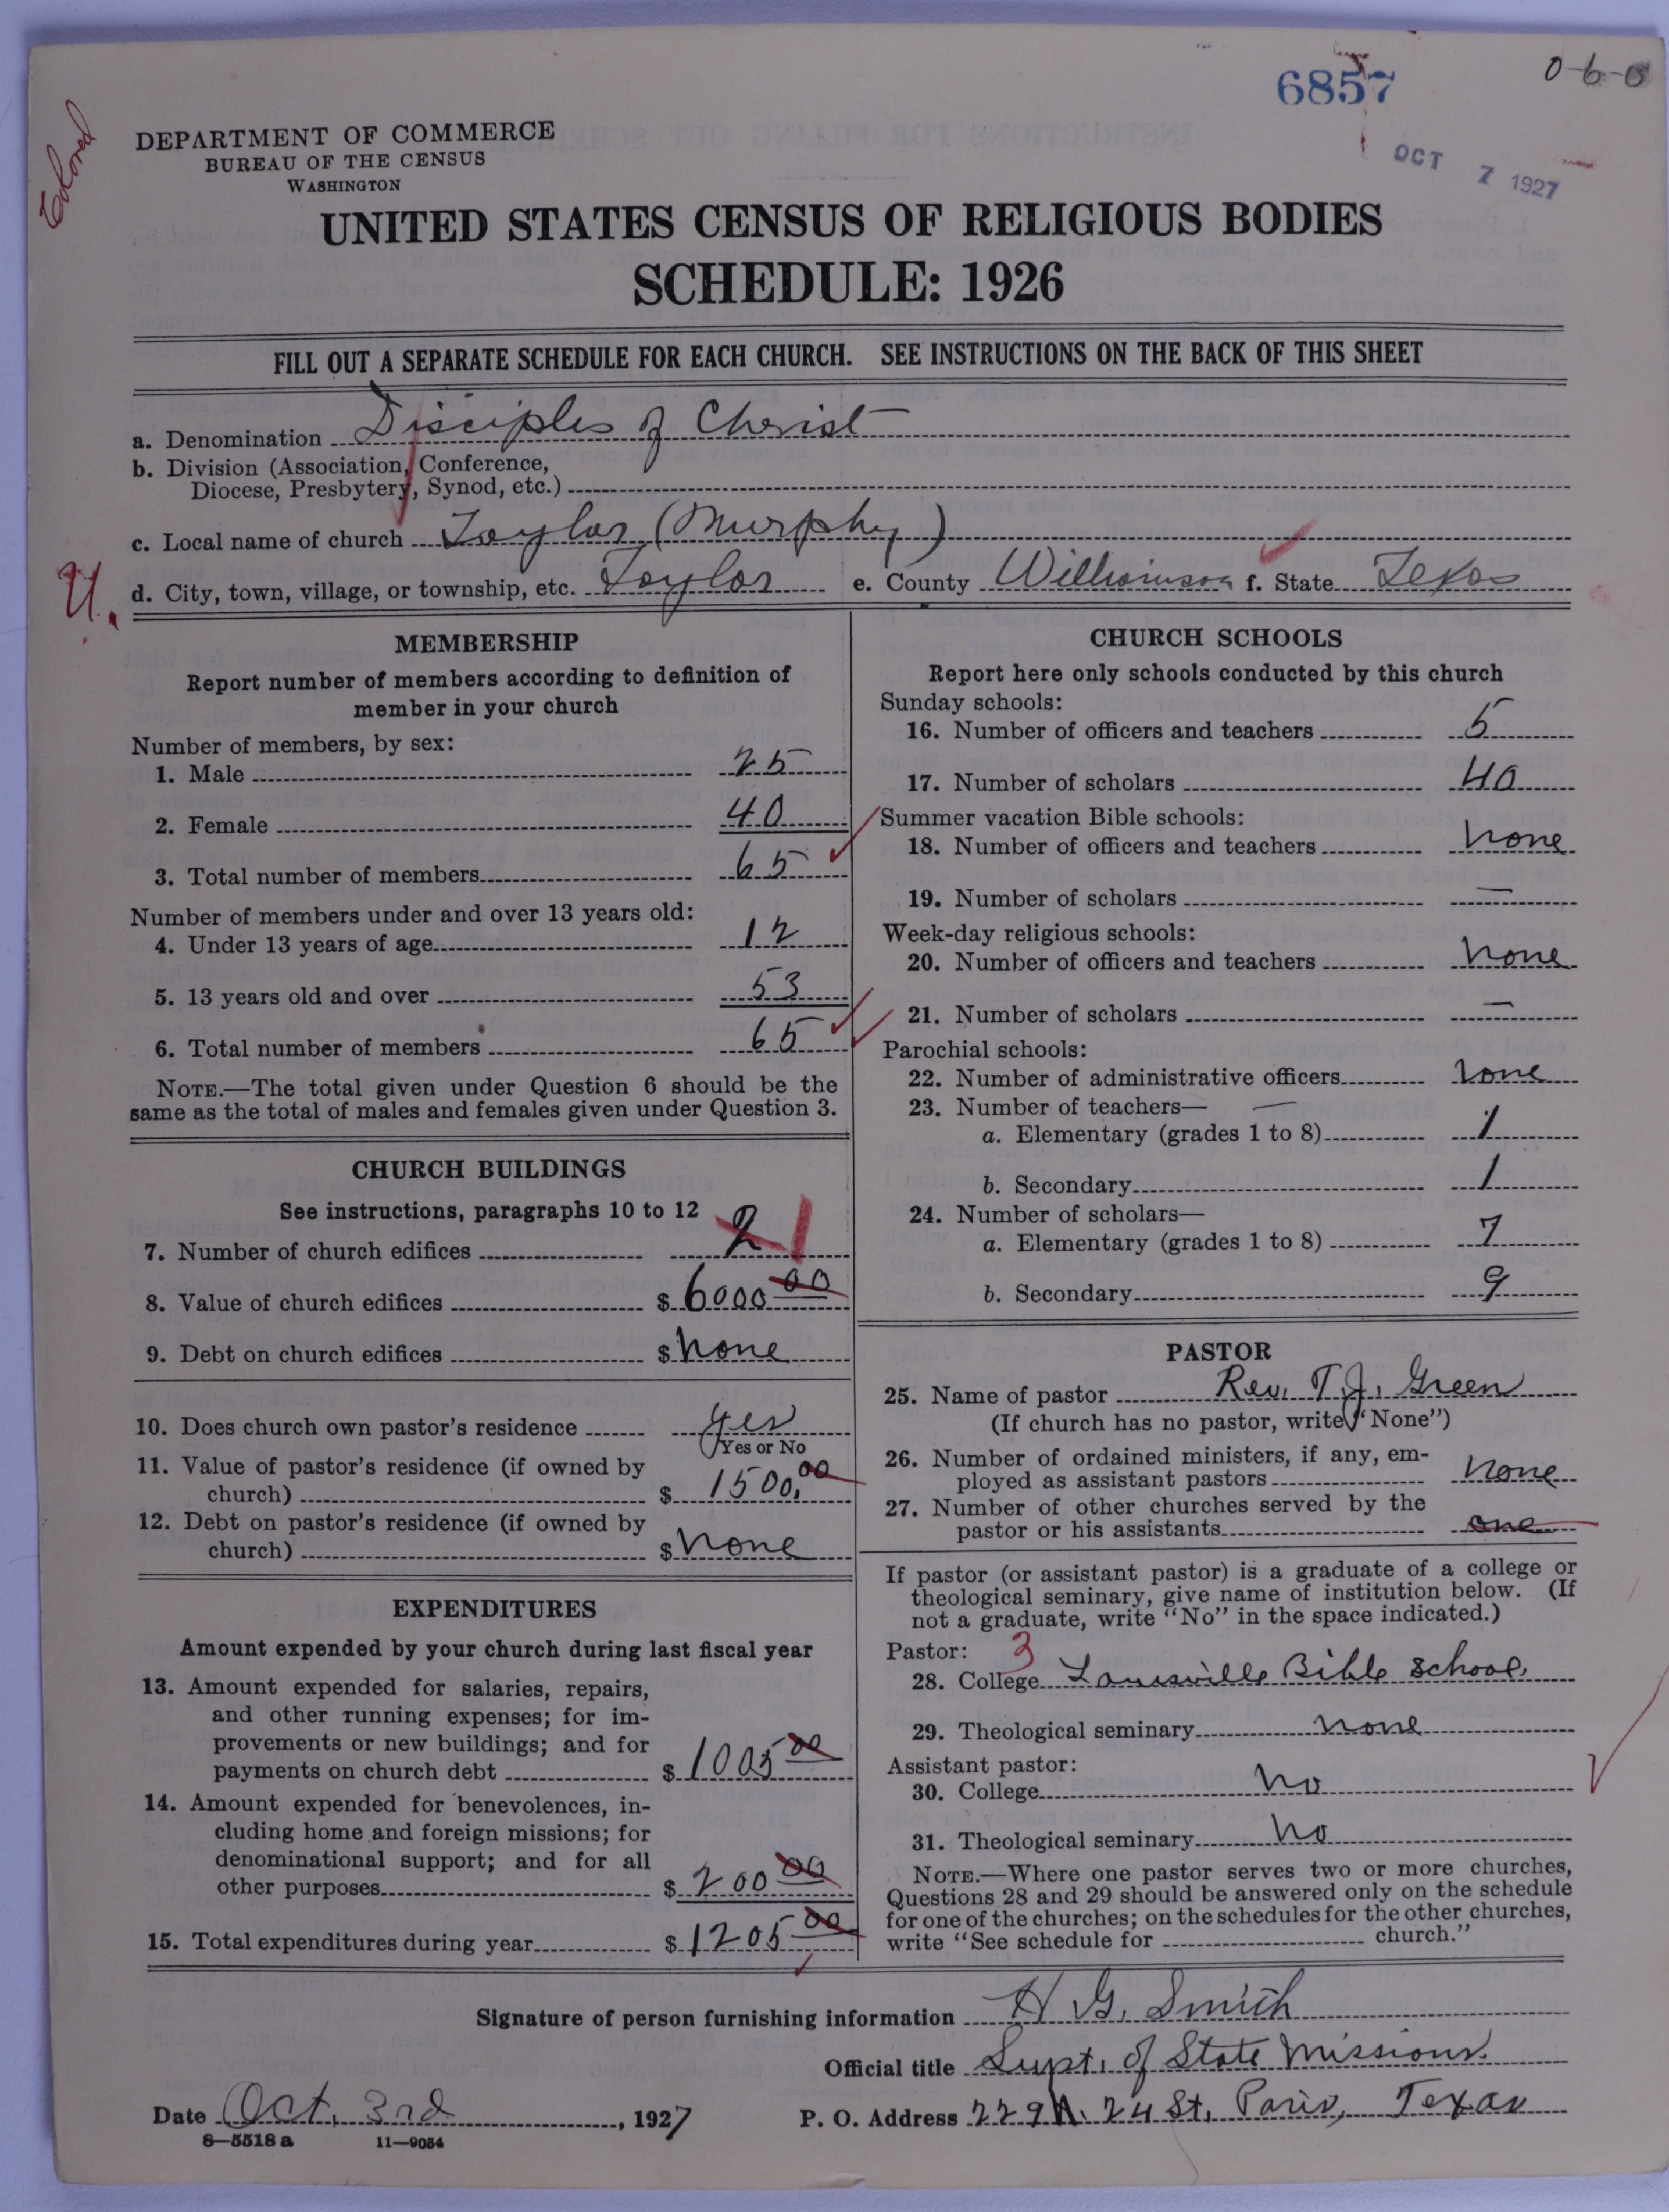 6857
0-6-0
OCT 7 1927
Colored
DEPARTMENT OF COMMERCE
BUREAU OF THE CENSUS
WASHINGTON
UNITED STATES CENSUS OF RELIGIOUS BODIES
SCHEDULE: 1926
FILL OUT A SEPARATE SCHEDULE FOR EACH CHURCH. SEE INSTRUCTIONS ON THE BACK OF THIS SHEET
a. Denomination Disciples of Christ
b. Division (Association, Conference,
Diocese, Presbytery, Synod, etc.)
c. Local name of church Taylor (Murphy)
U.
d. City, town, village, or township, etc. Taylor e. County Williamson f. State Texas
MEMBERSHIP
Report number of members according to definition of
member in your church
Number of members, by sex:
1. Male 25
2. Female 40
3. Total number of members 65
Number of members under and over 13 years old:
4. Under 13 years of age 12
5. 13 years old and over 53
6. Total number of members 65
NOTE.—The total given under Question 6 should be the
same as the total of males and females given under Question 3.
CHURCH BUILDINGS
See instructions, paragraphs 10 to 12
7. Number of church edifices 2 1
8. Value of church edifices $ 6000 00
9. Debt on church edifices $ none
10. Does church own pastor's residence yes
Yes or No
11. Value of pastor's residence (if owned by
church) $ 1500.00
12. Debt on pastor's residence (if owned by
church) $ none
EXPENDITURES
Amount expended by your church during last fiscal year
13. Amount expended for salaries, repairs,
and other running expenses; for im-
provements or new buildings; and for
payments on church debt $ 1005 00
14. Amount expended for benevolences, in-
cluding home and foreign missions; for
denominational support; and for all
other purposes $ 200 00
15. Total expenditures during year $ 1205 00
CHURCH SCHOOLS
Report here only schools conducted by this church
Sunday schools:
16. Number of officers and teachers 5
17. Number of scholars 40
Summer vacation Bible schools:
18. Number of officers and teachers none
19. Number of scholars —
Week-day religious schools:
20. Number of officers and teachers none
21. Number of scholars —
Parochial schools:
22. Number of administrative officers none
23. Number of teachers— —
a. Elementary (grades 1 to 8) 1
b. Secondary 1
24. Number of scholars—
a. Elementary (grades 1 to 8) 7
b. Secondary 9
PASTOR
25. Name of pastor Rev. T.J. Green
(If church has no pastor, write "None")
26. Number of ordained ministers, if any, em-
ployed as assistant pastors none
27. Number of other churches served by the
pastor or his assistants one
If pastor (or assistant pastor) is a graduate of a college or
theological seminary, give name of institution below. (If
not a graduate, write "No" in the space indicated.)
Pastor: 3
28. College Louisville Bible School.
29. Theological seminary none
Assistant pastor:
30. College No
31. Theological seminary No
NOTE.—Where one pastor serves two or more churches,
Questions 28 and 29 should be answered only on the schedule
for one of the churches; on the schedules for the other churches,
write "See schedule for church."
Signature of person furnishing information H G. Smith
Official title Supt. of State Missions.
Date Oct. 3rd, 1927 P. O. Address 229 N. 24 St, Paris, Texas
8—5518 a 11—9054